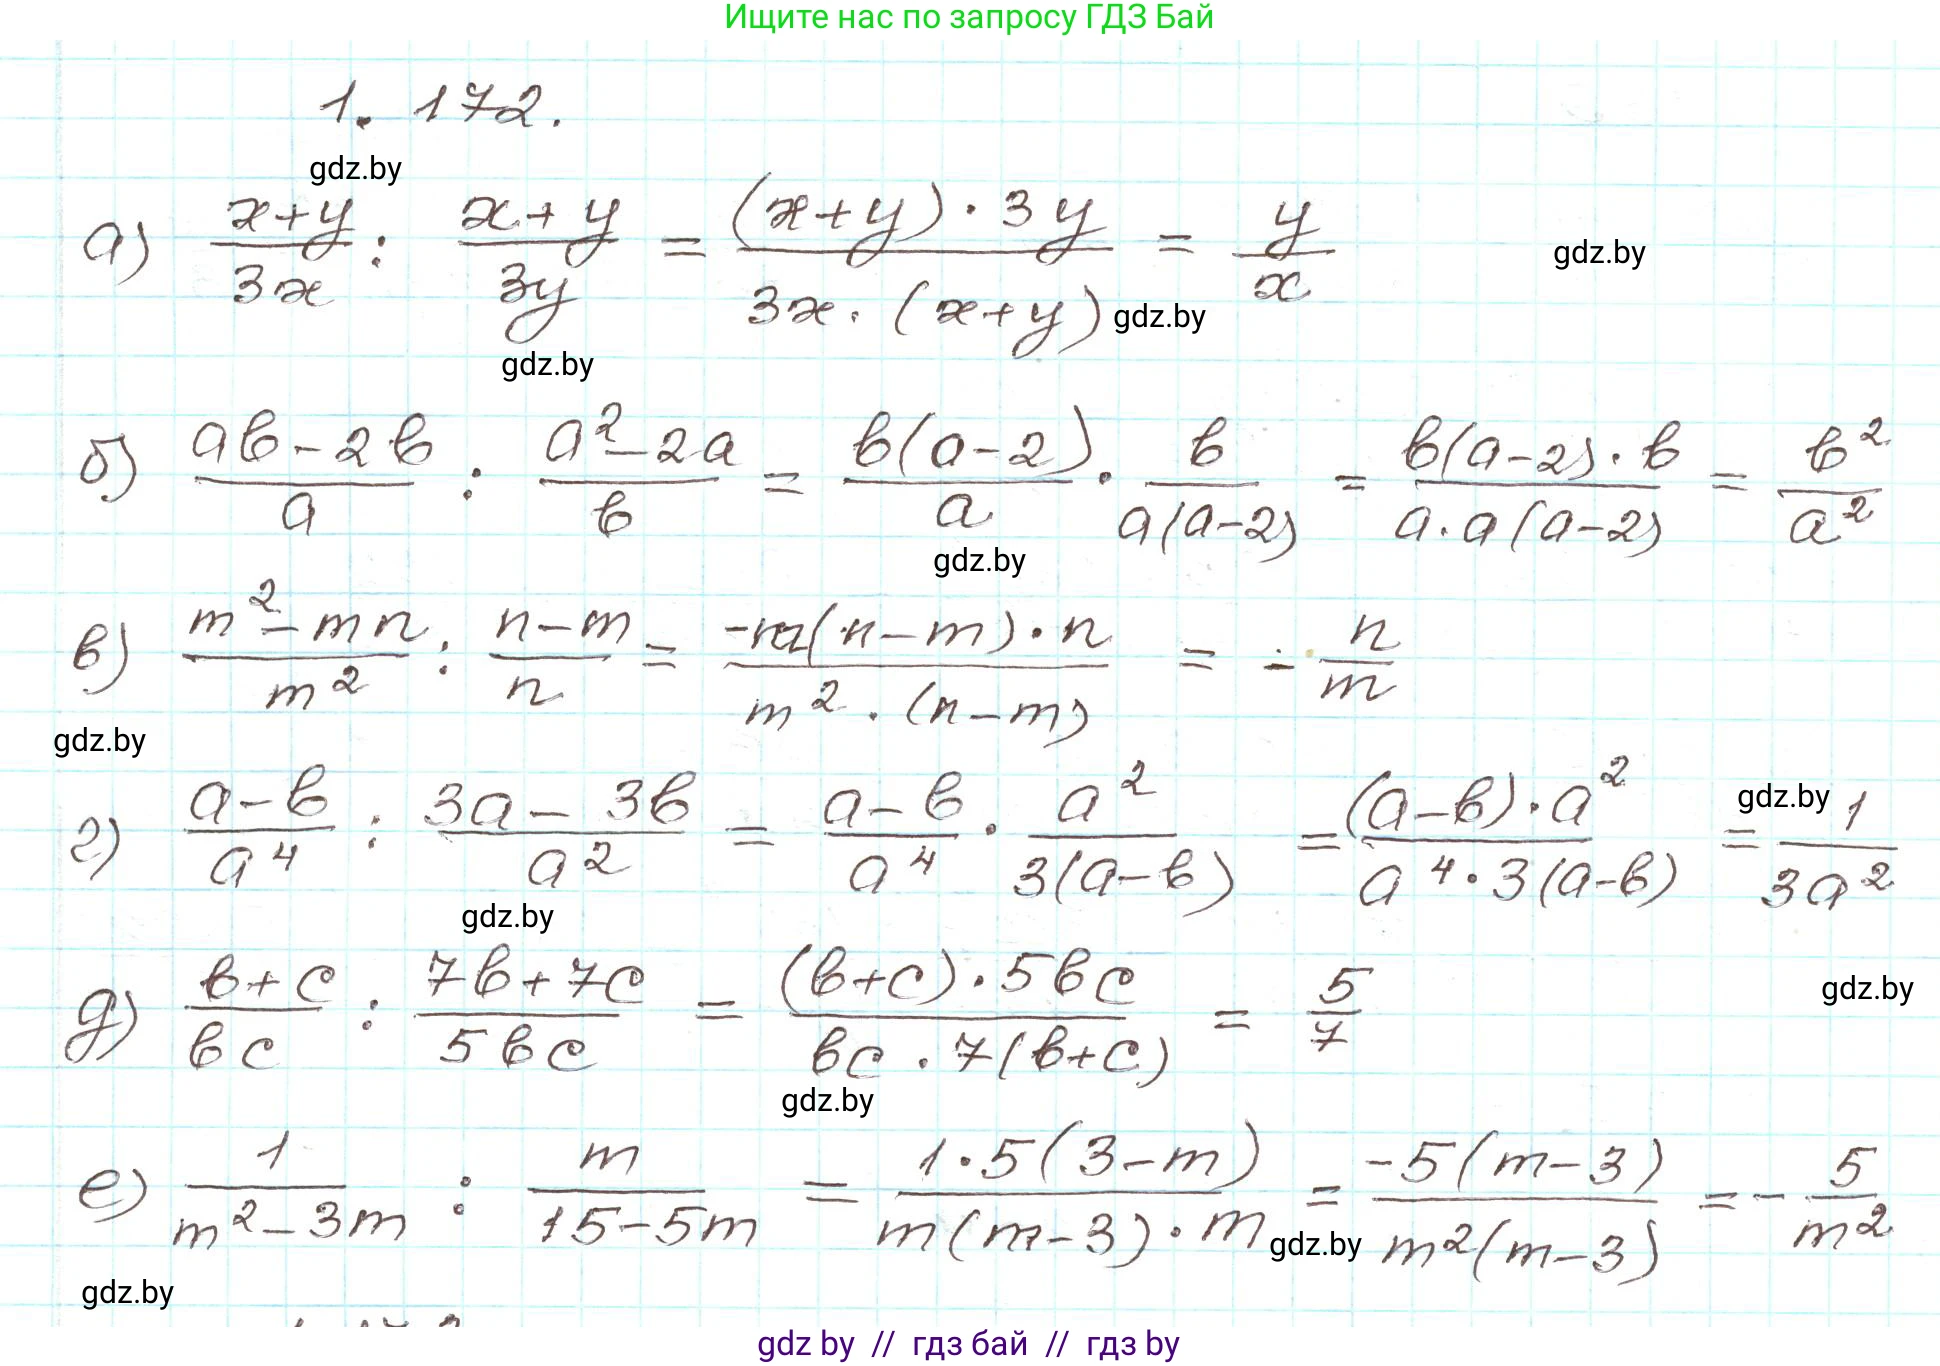 Ищите нас по запросу ГДЗ Бай
1. 172.
gdz.by
а) (x+y)/(3x) : (x+y)/(3y) = ((x+y)·3y)/(3x·(x+y)) = y/x
gdz.by
gdz.by
gdz.by
б) (ab-2b)/a : (a²-2a)/b = (b(a-2))/a · b/(a(a-2)) = (b(a-2)·b)/(a·a(a-2)) = b²/a²
gdz.by
в) (m²-mn)/m² : (n-m)/n = (-m(n-m)·n)/(m²·(n-m)) = -n/m
gdz.by
г) (a-b)/a⁴ : (3a-3b)/a² = (a-b)/a⁴ · a²/(3(a-b)) = ((a-b)·a²)/(a⁴·3(a-b)) = 1/(3a²)
gdz.by
gdz.by
д) (b+c)/(bc) : (7b+7c)/(5bc) = ((b+c)·5bc)/(bc·7(b+c)) = 5/7
gdz.by
gdz.by
е) 1/(m²-3m) : m/(15-5m) = (1·5(3-m))/(m(m-3)·m) = (-5(m-3))/(m²(m-3)) = -5/m²
gdz.by
gdz.by
gdz by // гдз бай // гдз by